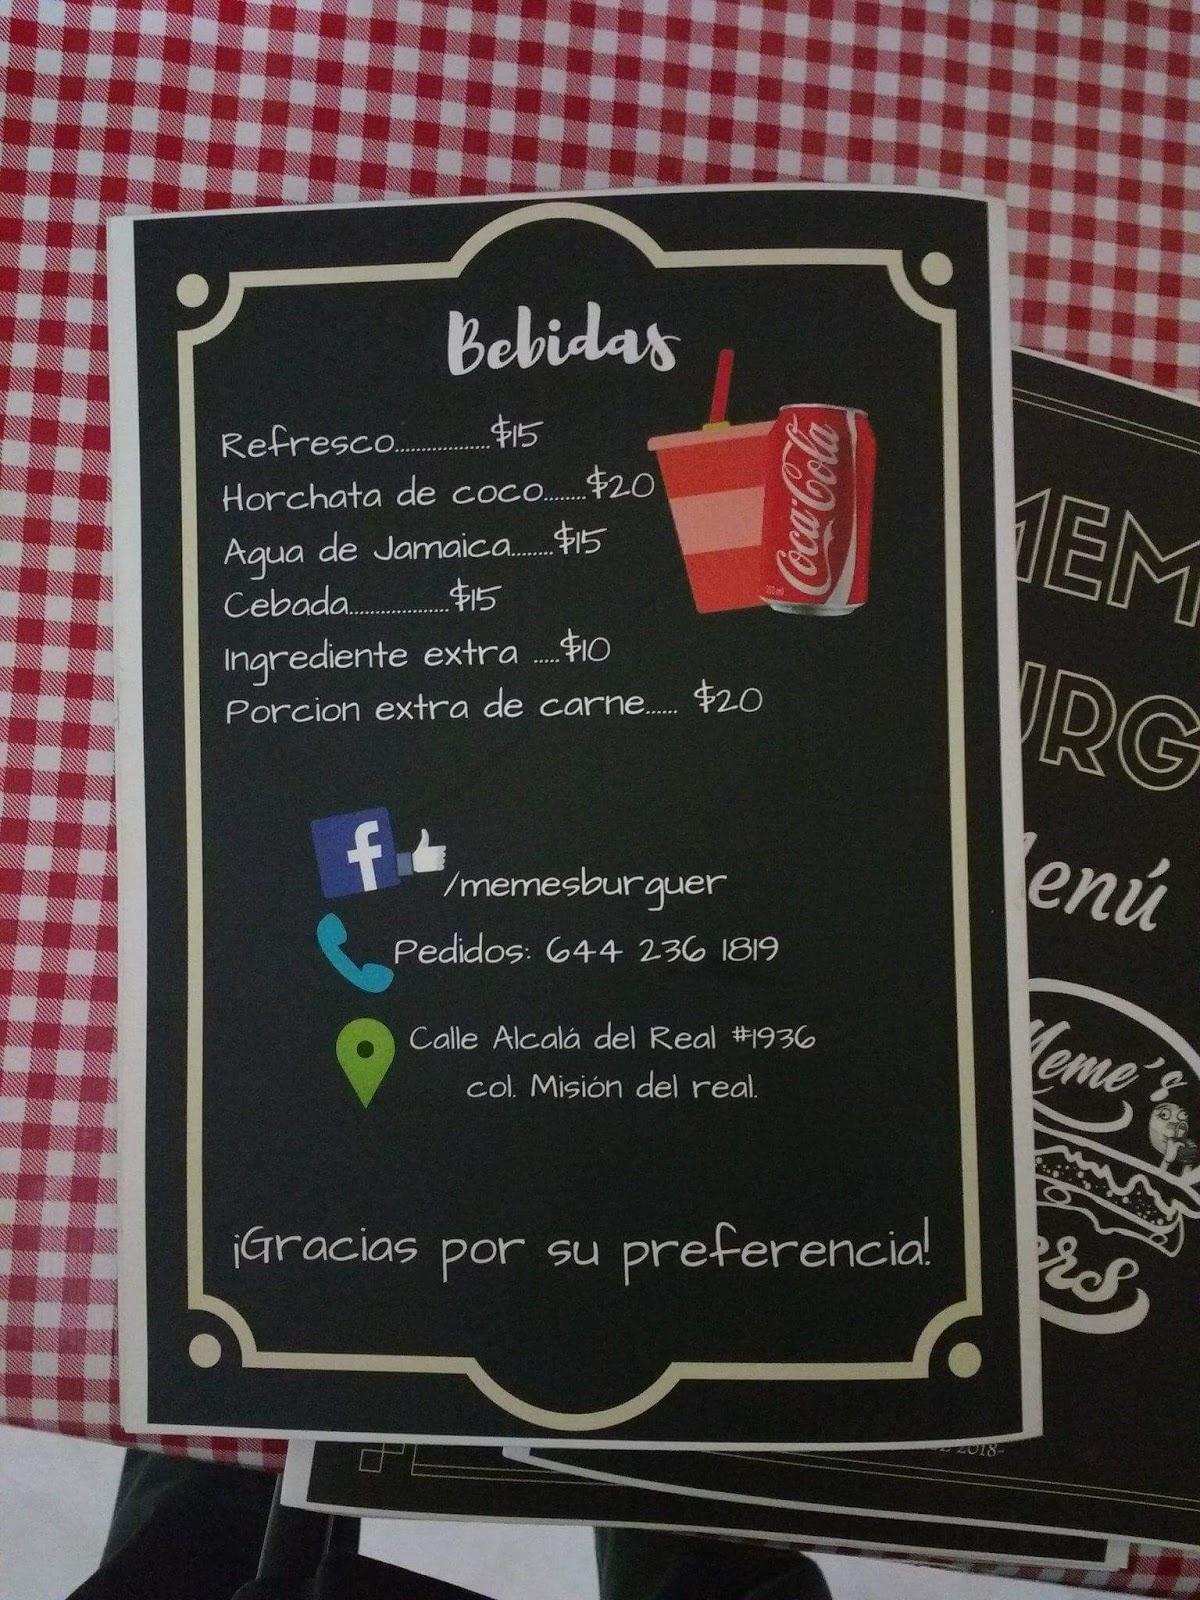 Bebidas
Refresco................$15
Horchata de coco.......$20
Agua de Jamaica.......$15
Cebada.................$15
Ingrediente extra .....$10
Porcion extra de carne...... $20
Coca-Cola
f
/memesburguer
Pedidos: 644 236 1819
Calle Alcalá del Real #1936
col. Misión del real.
¡Gracias por su preferencia!
MEM
URG
enú
Meme's
ers
2018-